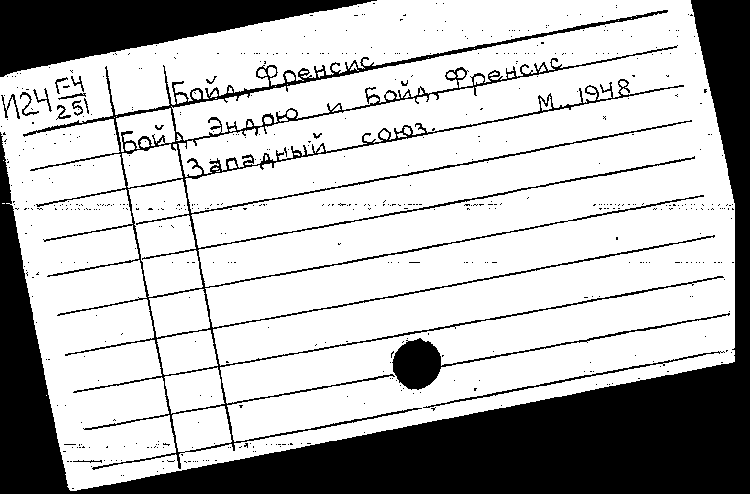 И24 Г-4/251
Бойд, Френсис
Бойд, Эндрю и Бойд, Френсис
Западный союз. М., 1948